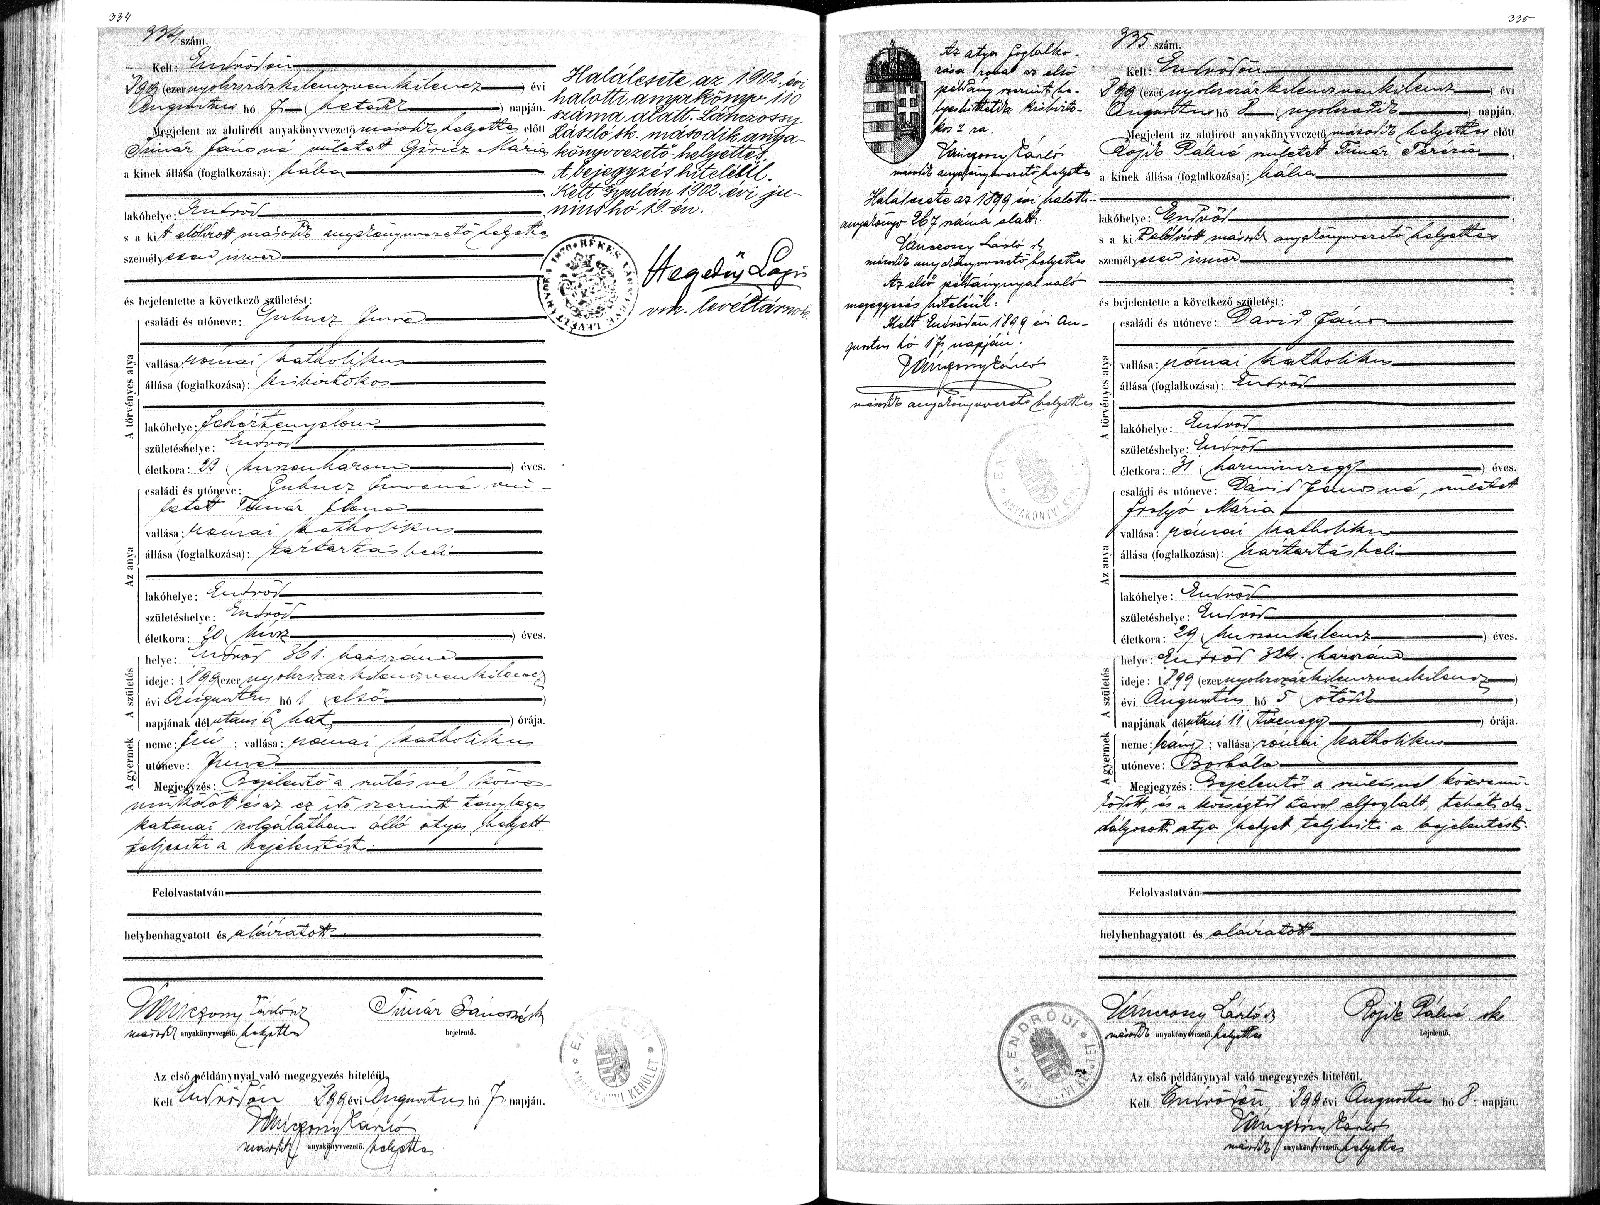 334
334 szám.
Kelt: Endrődön
899 (ezernyolcszázkilenczvenkilencz) évi
Augusztus hó 7 (hetedik) napján.
Megjelent az alulirott anyakönyvvezető második helyettes előtt
Timár Jánosné született Mária
a kinek állása (foglalkozása): bába
lakóhelye: Endrőd
s a kit alólirott második anyakönyvvezető helyettes
személyesen ismer
és bejelentette a következő születést:
A törvényes atya
családi és utóneve: Gubucz Imre
vallása: római katholikus
állása (foglalkozása):
lakóhelye:
születéshelye: Endrőd
életkora: 23 (huszonhárom) éves.
Az anya
családi és utóneve: Gubucz Imréné szü-
letett Timár Ilona
vallása: római katholikus
állása (foglalkozása): háztartásbeli
lakóhelye: Endrőd
születéshelye: Endrőd
életkora: 20 (húsz) éves.
A születés
helye: Endrőd 861. házszám
ideje: 1899 (ezernyolcszázkilenczvenkilencz)
évi Augusztus hó 1 (első)
napjának délutáni 6 (hat) órája.
A gyermek
neme: fiú; vallása: római katholikus
utóneve: Imre
Megjegyzés: Bejelentő a szülésnél közre-
működött és az ez idő szerint tényleges
katonai szolgálatban álló atya helyett
teljesíti a bejelentést.
Felolvastatván
helybenhagyatott és aláiratott
Lánczony László Timár Jánosné sk
második anyakönyvvezető helyettes bejelentő.
Az első példánynyal való megegyezés hiteléül.
Kelt Endrődön 899 évi Augusztus hó 7 napján.
Lánczony László
második anyakönyvvezető helyettes
Halálesete az 1902. évi
halotti anyakönyv 110
száma alatt. Lánczossy
László sk. második anya-
könyvezető helyettes.
A bejegyzés hiteléül.
Kelt Gyulán 1902. évi ju-
nius hó 19 én.
Hegedűs Lajos
vm. levéltárnok
335
Az atya foglalko-
zása rovat az első
példány szerint he-
lyesbittetik
ra.
Lánczony László
második anyakönyvvezető helyettes
Halálesete az 1899 évi halotti
anyakönyv 267 száma alatt.
Lánczony László sk
második anyakönyvvezető helyettes
Az első példánynyal való
megegyezés hiteléül.
Kelt Endrődön 1899 évi Au-
gusztus hó 17 napján.
Lánczony László
második anyakönyvvezető helyettes
335 szám.
Kelt: Endrődön
899 (ezernyolcszázkilenczvenkilencz) évi
Augusztus hó 8 (nyolczadik) napján.
Megjelent az alulirott anyakönyvvezető második helyettes előtt
Rojik Pálné született Timár Terézia
a kinek állása (foglalkozása): bába
lakóhelye: Endrőd
s a kit alólirott második anyakönyvvezető helyettes
személyesen ismer
és bejelentette a következő születést:
A törvényes atya
családi és utóneve: Dávid János
vallása: római katholikus
állása (foglalkozása): Endrőd
lakóhelye: Endrőd
születéshelye: Endrőd
életkora: 31 (harminczegy) éves.
Az anya
családi és utóneve: Dávid Jánosné, született
Mária
vallása: római katholikus
állása (foglalkozása): háztartásbeli
lakóhelye: Endrőd
születéshelye: Endrőd
életkora: 29 (huszonkilencz) éves.
A születés
helye: Endrőd 324. házszám
ideje: 1899 (ezernyolcszázkilenczvenkilencz)
évi Augusztus hó 5 (ötödik)
napjának délutáni 11 (tizenegy) órája.
A gyermek
neme: leány; vallása: római katholikus
utóneve: Borbála
Megjegyzés: Bejelentő a szülésnél közremű-
ködött, és a községtől távol elfoglalt, tehát aka-
dályozott atya helyett teljesíti a bejelentést.
Felolvastatván
helybenhagyatott és aláiratott
Lánczony László sk Rojik Pálné sk
második anyakönyvvezető helyettes bejelentő.
ENDRŐDI
Az első példánynyal való megegyezés hiteléül.
Kelt Endrődön 899 évi Augusztus hó 8. napján.
Lánczony László
második anyakönyvvezető helyettes